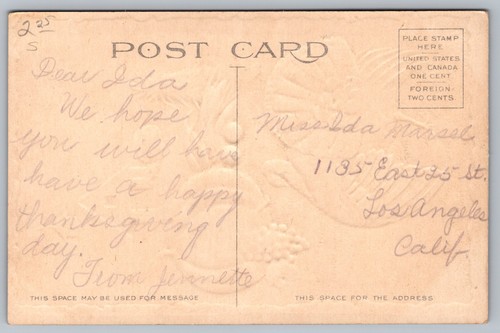 2 35
S
POST CARD
PLACE STAMP
HERE
UNITED STATES
AND CANADA
ONE CENT
FOREIGN-
TWO CENTS.
Dear Ida
We hope
you will have
have a happy
thanksgiving
day.
From Jennette
Miss Ida Marsel
1135 East 25 St.
Los Angeles
Calif.
THIS SPACE MAY BE USED FOR MESSAGE
THIS SPACE FOR THE ADDRESS